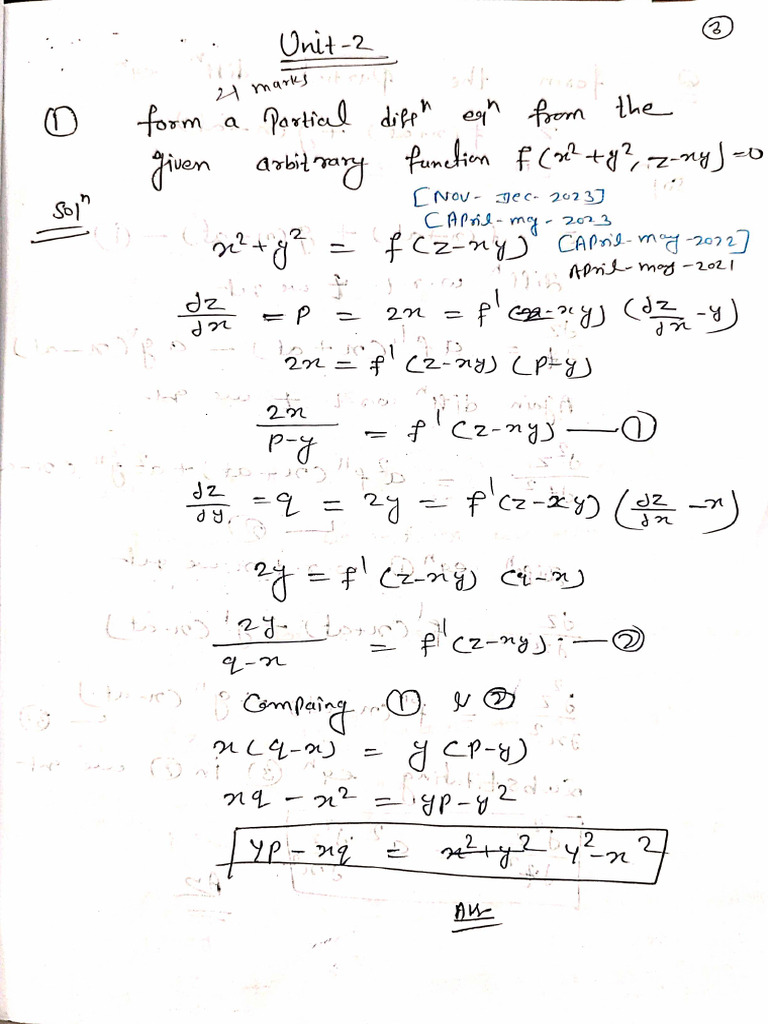 ③
Unit-2
21 marks
① form a Partial diffⁿ eqⁿ from the
given arbitrary function f(x²+y², z-xy)=0
Solⁿ
[Nov- Dec- 2023]
[April-my-2023
x²+y² = f(z-xy) [April-may-2022]
April-may-2021
dz/dx = P = 2x = f'(-xy) (dz/dx -y)
2x = f'(z-xy) (P-y)
2x/(P-y) = f'(z-xy) —①
dz/dy = q = 2y = f'(z-xy) (dz/dx -x)
2y = f'(z-xy) (q-x)
2y/(q-x) = f'(z-xy) —②
Compaing ① & ②
x(q-x) = y(P-y)
xq - x² = yp-y²
yp-xq = x²+y² y²-x²
Ans